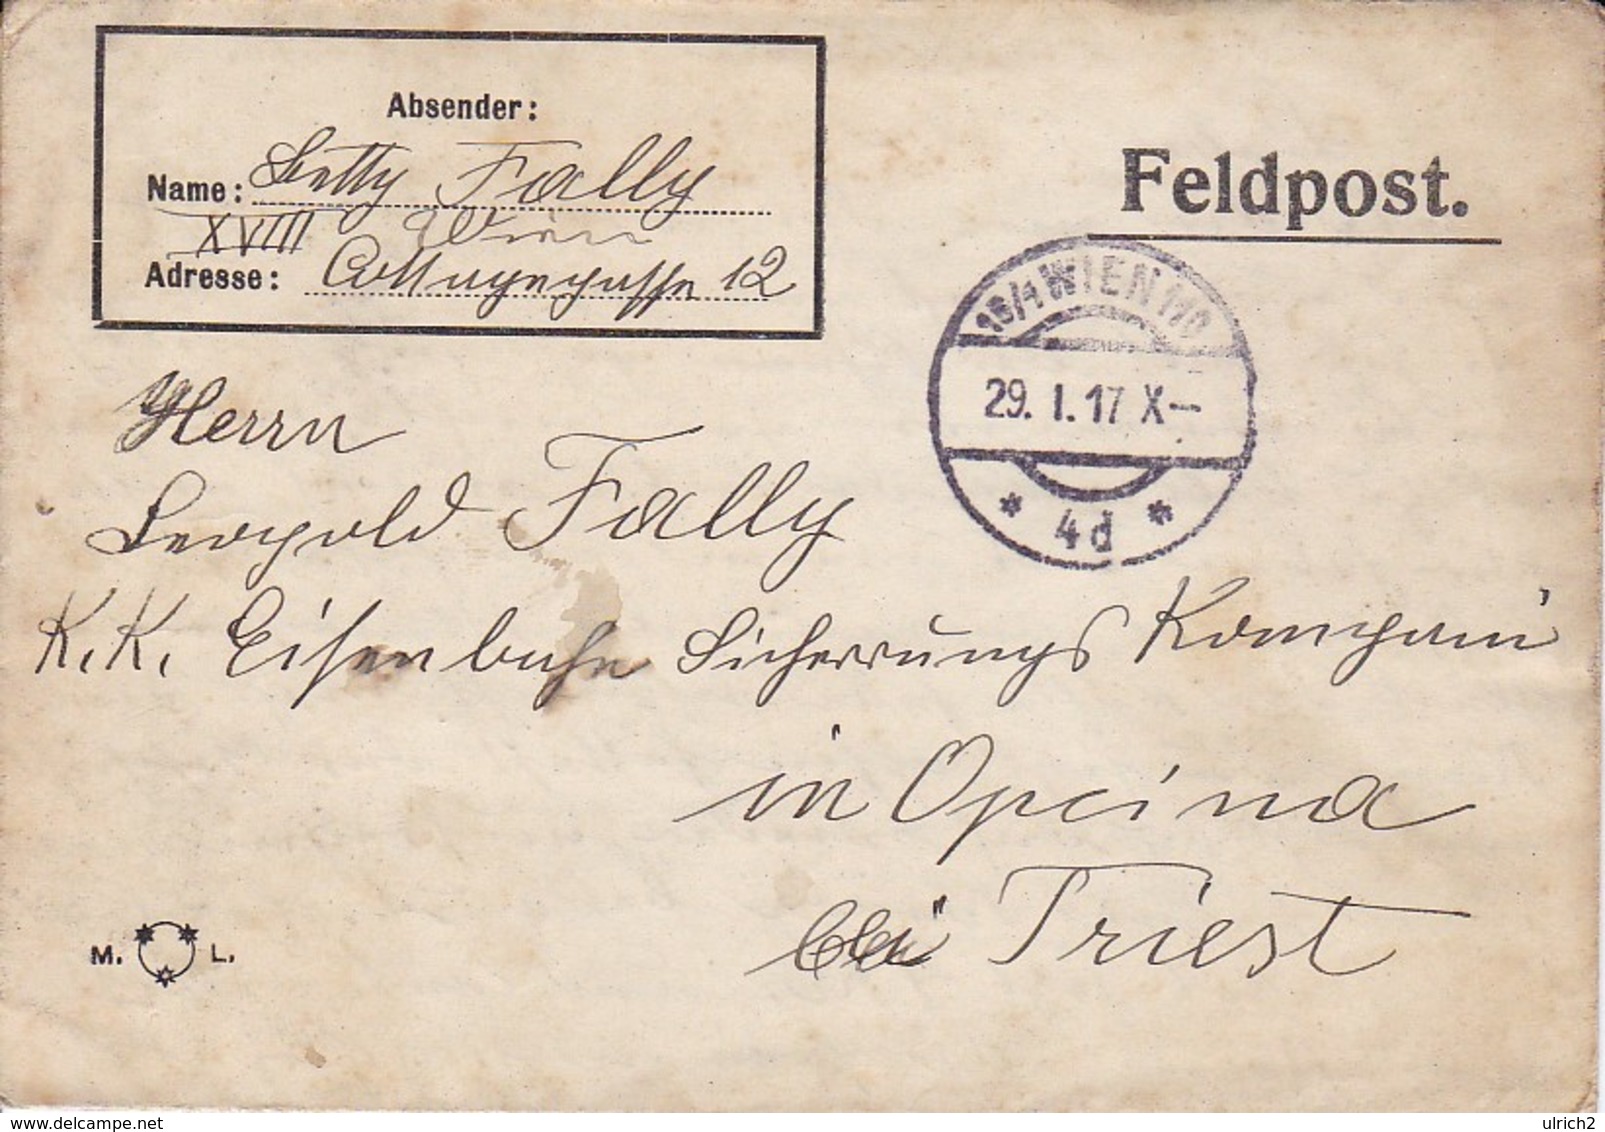 Absender:
Name: Betty Fally
XVIII Wien
Adresse: Cottagegasse 12
Feldpost.
18/1 WIEN 110
29. I. 17 X—
* 4d *
Herrn
Leopold Fally
K. K. Eisenbahn Sicherrungs Kompani
in Opcina
bei Triest
M. L.
delcampe.net
ulrich2